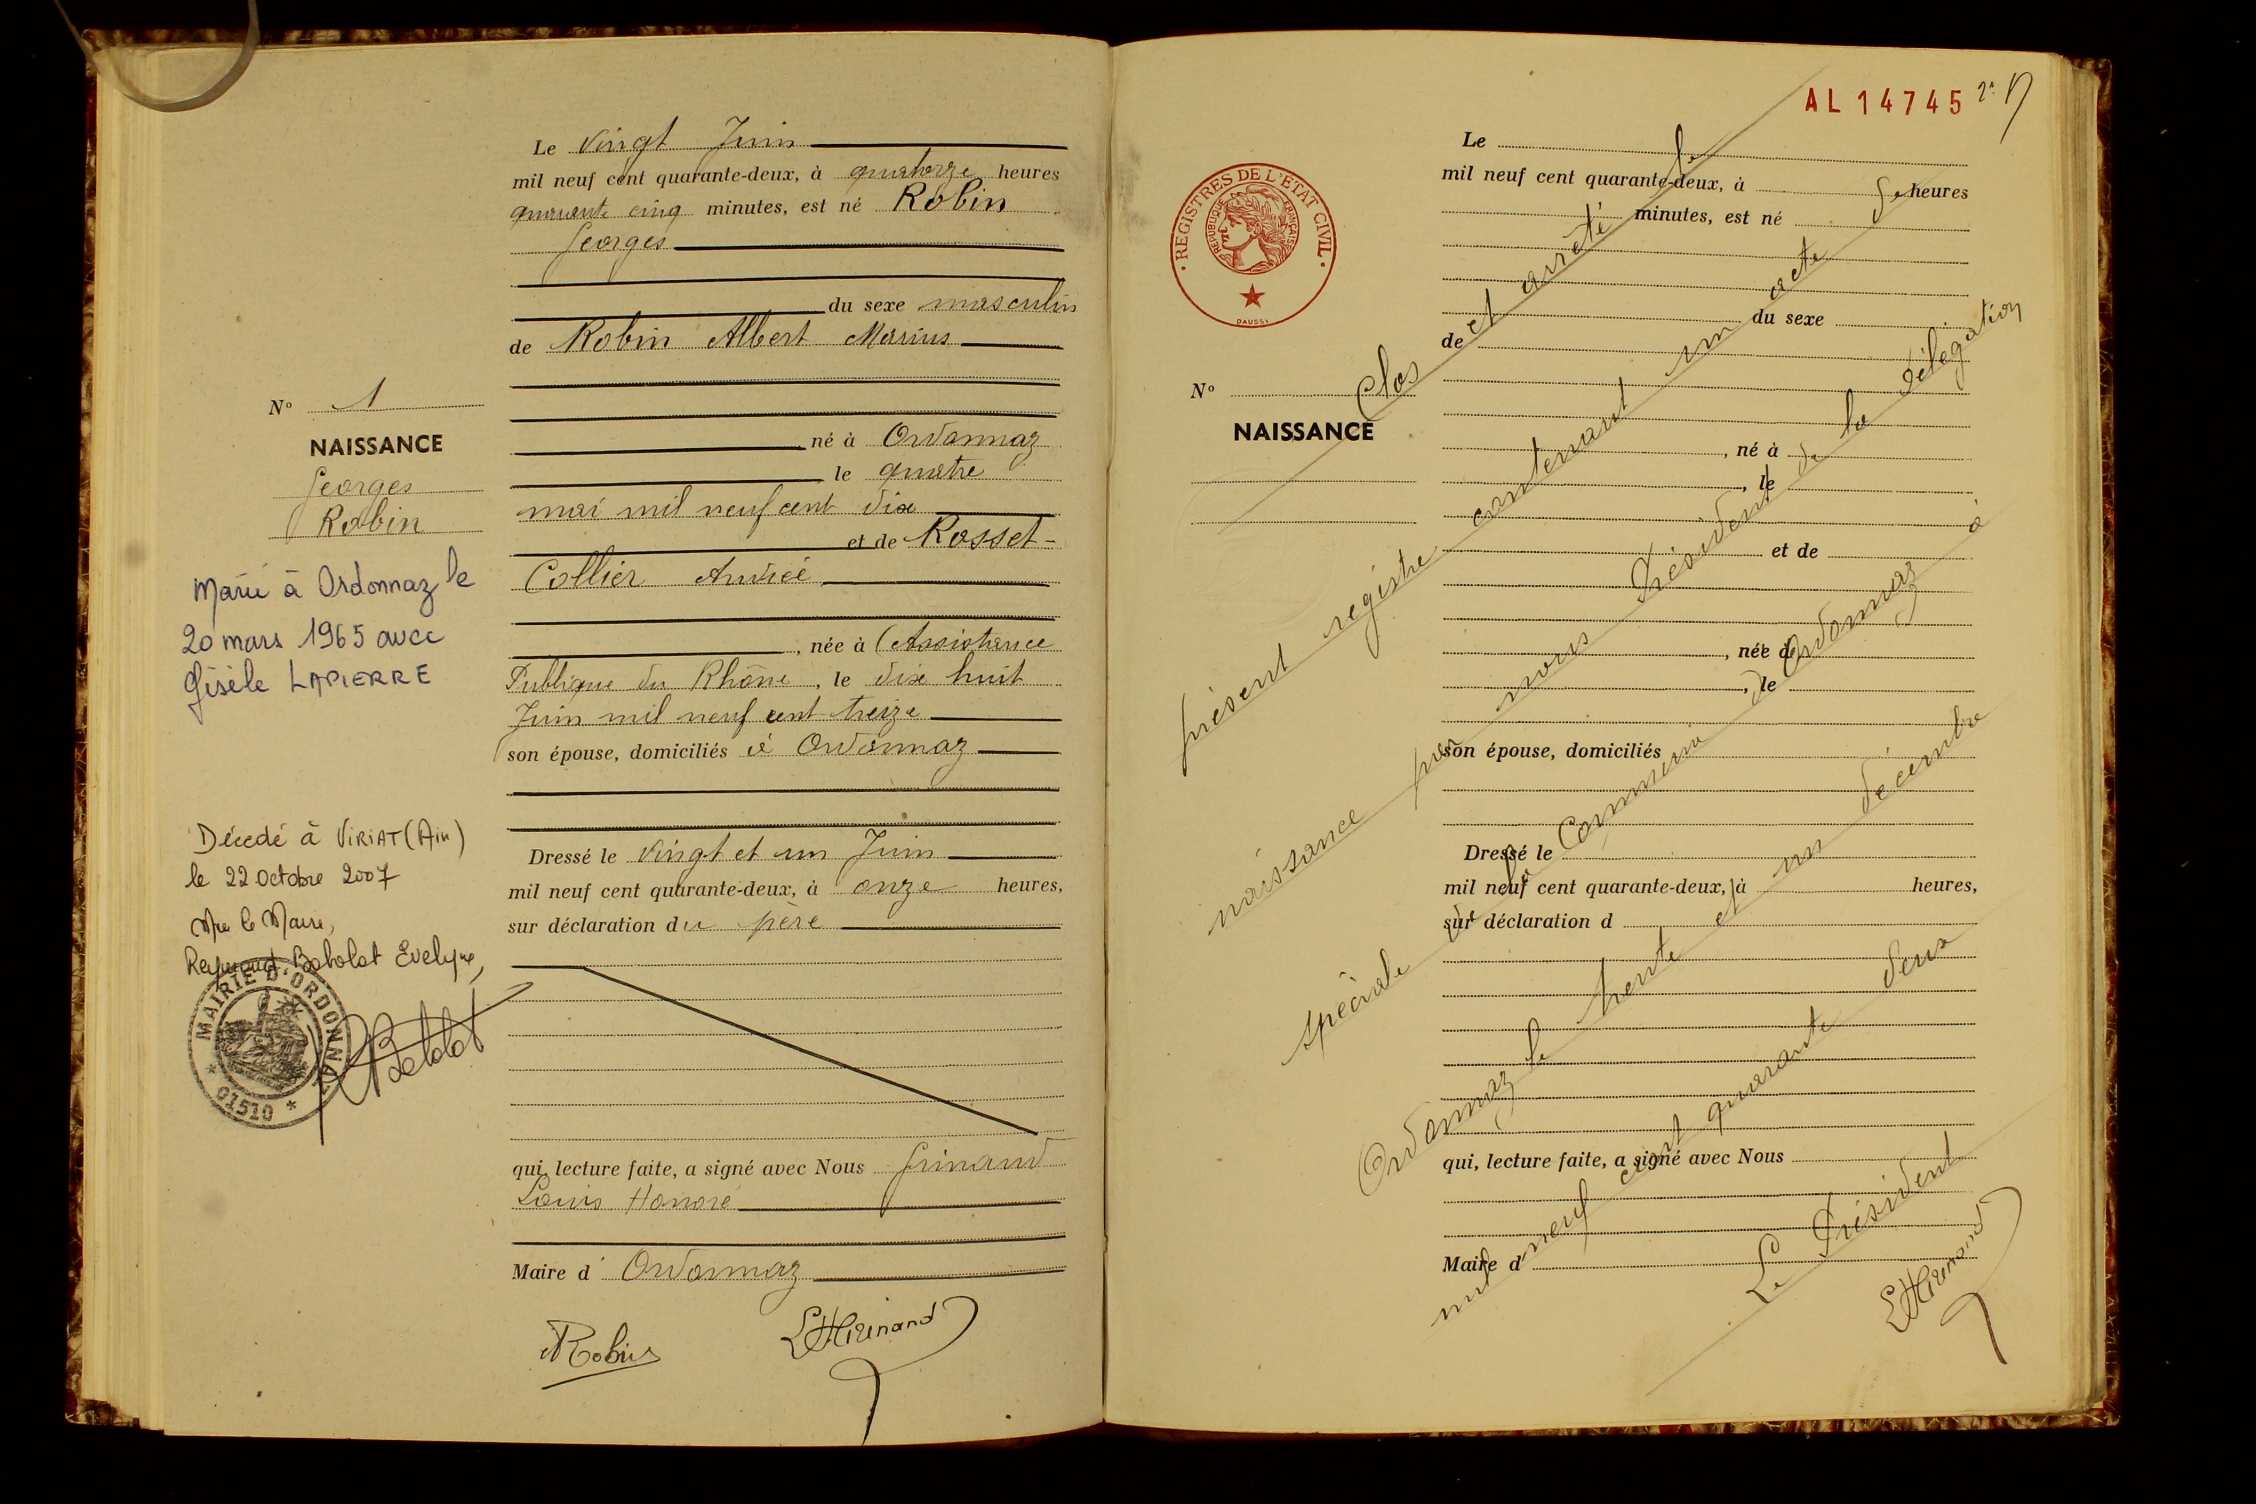 Le Vingt Juin
mil neuf cent quarante-deux, à quatorze heures
quarante cinq minutes, est né Robin
Georges
du sexe masculin
de Robin Albert Marius
né à Ordonnaz
le quatre
mai mil neuf cent dix
et de Rosset-
Collier Andréé
, née à l'Assistance
Publique du Rhône, le dix huit
Juin mil neuf cent treize
son épouse, domiciliés à Ordonnaz
Dressé le vingt et un Juin
mil neuf cent quarante-deux, à onze heures,
sur déclaration du père
qui, lecture faite, a signé avec Nous Grinand
Louis Honoré
Maire d' Ordonnaz
Robin
LHGrinand
N° 1
NAISSANCE
Georges
Robin
Marié à Ordonnaz le
20 mars 1965 avec
Gisèle LAPIERRE
Décédé à VIRIAT (Ain)
le 22 Octobre 2007
le Maire,
Babolat Evelyne,
MAIRIE D'ORDONNAZ
* 01510 *
Babolat
AL 14745
2
REGISTRES DE L'ETAT CIVIL
REPUBLIQUE FRANÇAISE
DAUSSY
N°
NAISSANCE
Le
mil neuf cent quarante-deux, à heures
minutes, est né
du sexe
de
, né à
, le
et de
, née à
, le
son épouse, domiciliés
Dressé le
mil neuf cent quarante-deux, à heures,
sur déclaration d
qui, lecture faite, a signé avec Nous
Maire d
Clos et arrêté le
présent registre contenant un acte de
naissance par nous Président de la délégation
spéciale de la Commune d'Ordonnaz à
Ordonnaz le trente et un décembre
mil neuf cent quarante deux
Le Président
LHGrinand